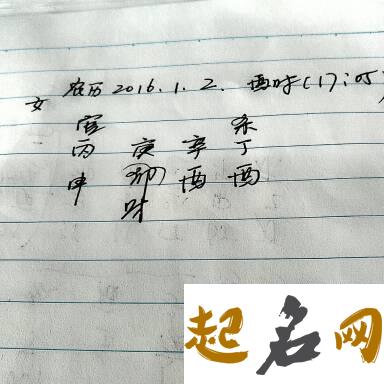 女 农历2016.1.2. 酉时(17:05)
官 杀
丙 庚 辛 丁
申 酉 酉
财
起名网